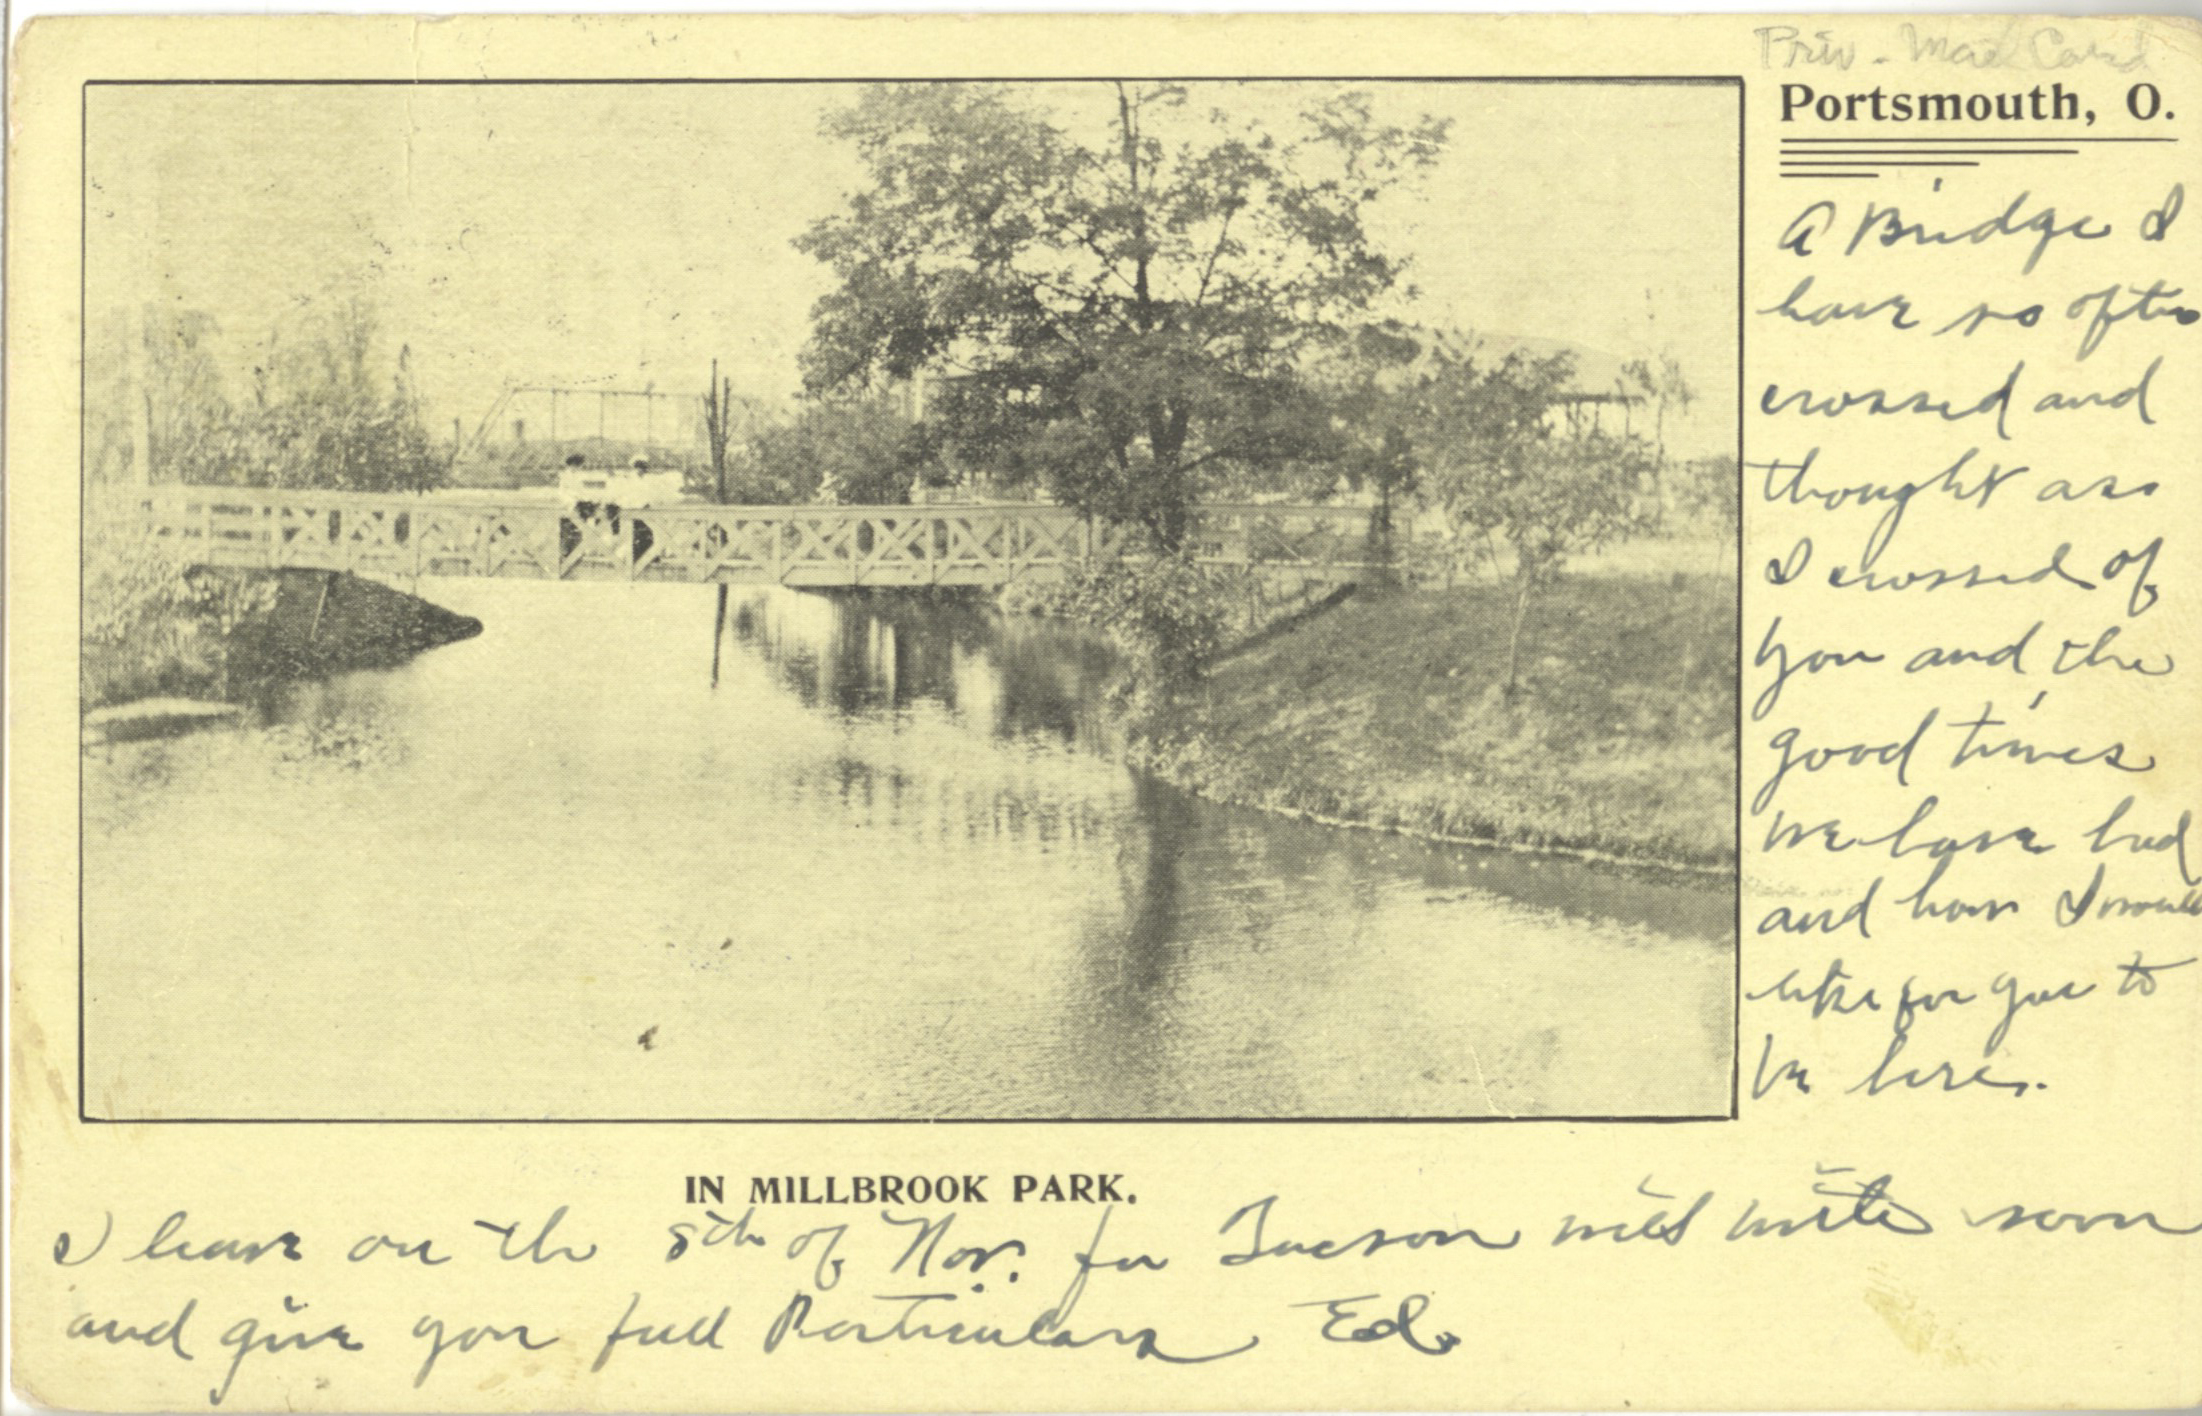 Priv. Mail Card
Portsmouth, O.
A Bridge I
have so often
crossed and
thought as
I crossed of
you and the
good times
we have had
and how I would
like for you to
be here.
IN MILLBROOK PARK.
I leave on the 8th of Nov. for Tucson will write soon
and give you full Particulars Ed.